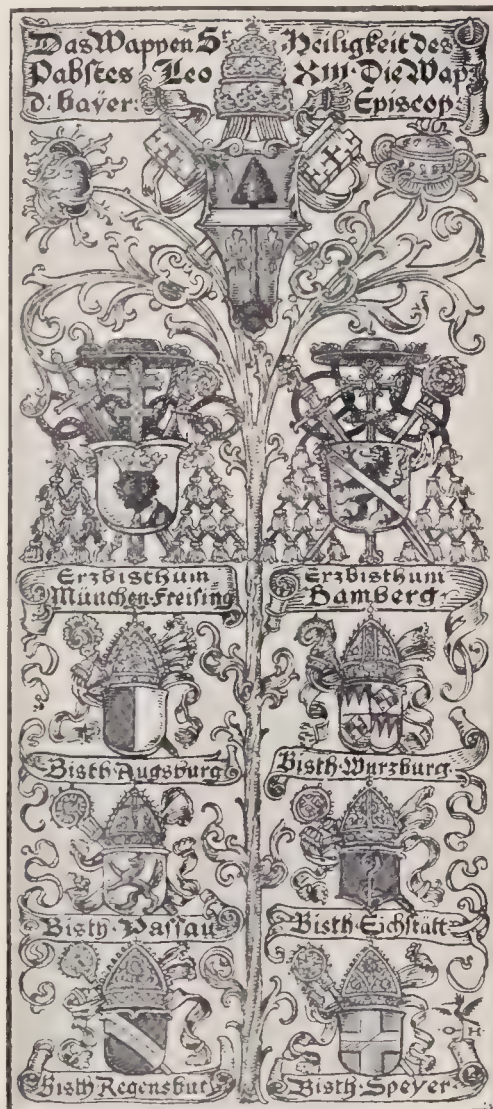 Das Wappen Sr. Heiligkeit des
Pabstes Leo XIII. Die Wap
d: bayer: Episcop:
Erzbisthum
München-Freising
Erzbisthum
Bamberg
Bisth. Augsburg
Bisth. Wurzburg
Bisth. Passau
Bisth. Eichstätt
Bisth. Regensbur
Bisth. Speyer
O H